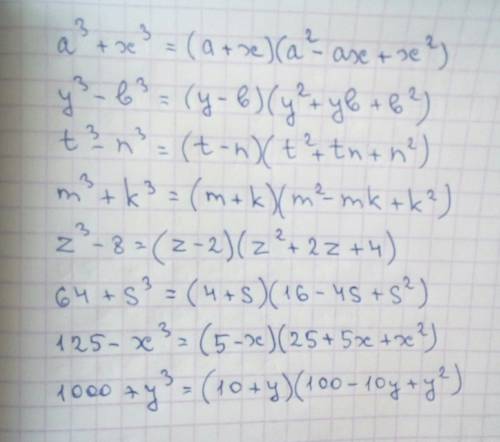 a³ + x³ = (a+x)(a² - ax + x²)
y³ - b³ = (y-b)(y² + yb + b²)
t³ - n³ = (t-n)(t² + tn + n²)
m³ + k³ = (m+k)(m² - mk + k²)
z³ - 8 = (z-2)(z² + 2z + 4)
64 + s³ = (4+s)(16 - 4s + s²)
125 - x³ = (5-x)(25 + 5x + x²)
1000 + y³ = (10+y)(100 - 10y + y²)